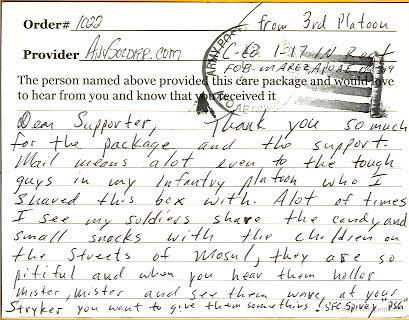 Order# 1022
from 3rd Platoon
Provider AnySoldier.com
C-Co 1-17 IN Regt
FOB MAREZ APO AE
ARMY POST
The person named above provided this care package and would love
to hear from you and know that you received it
Dear Supporter, Thank you so much
for the package and the support.
Mail means alot even to the tough
guys in my Infantry platoon who I
shared this box with. Alot of times
I see my soldiers share the candy and
small snacks with the children on
the streets of Mosul, they are so
pitiful and when you hear them hollor
mister, mister and see them wave, at your
Stryker you want to give them something! SFC Spivey "PSG"